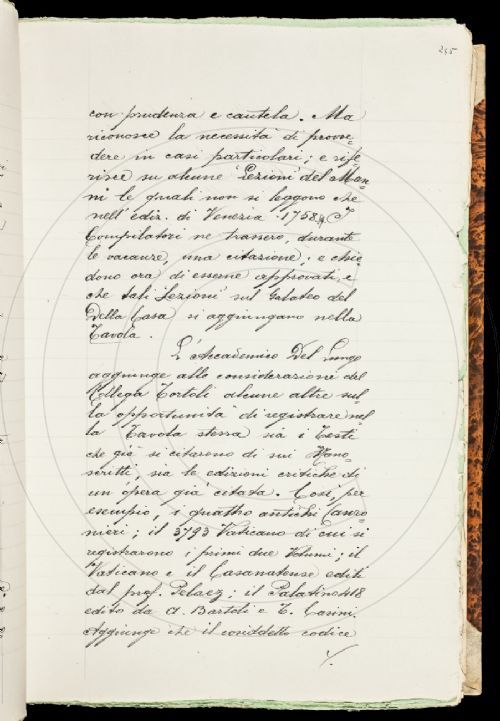 245
con prudenza e cautela. Ma
riconosce la necessità di provve-
dere in casi particolari; e rife-
risce su alcune "Lezioni" del Man-
ni le quali non si leggono che
nell'ediz. di Venezia 1758. I
Compilatori ne trassero, durante
le vacanze, una citazione; e chie-
dono ora di esserne approvati, e
che tali "Lezioni" sul Galateo del
Della Casa si aggiungano nella
Tavola.
L'Accademico Del Lungo
aggiunge alle considerazioni del
Collega Tortoli alcune altre sul-
la opportunità di registrare nel-
la Tavola stessa sia i Testi
che già si citarono di sui Mano-
scritti, sia le edizioni critiche di
un'opera già citata. Così, per
esempio, i quattro antichi Canzo-
nieri; il 3793 Vaticano di cui si
registrarono i primi due Volumi; il
Vaticano e il Casanatense editi
dal prof. Pelaez; il Palatino 418
edito da A. Bartoli e T. Casini.
Aggiunge che il cosiddetto codice